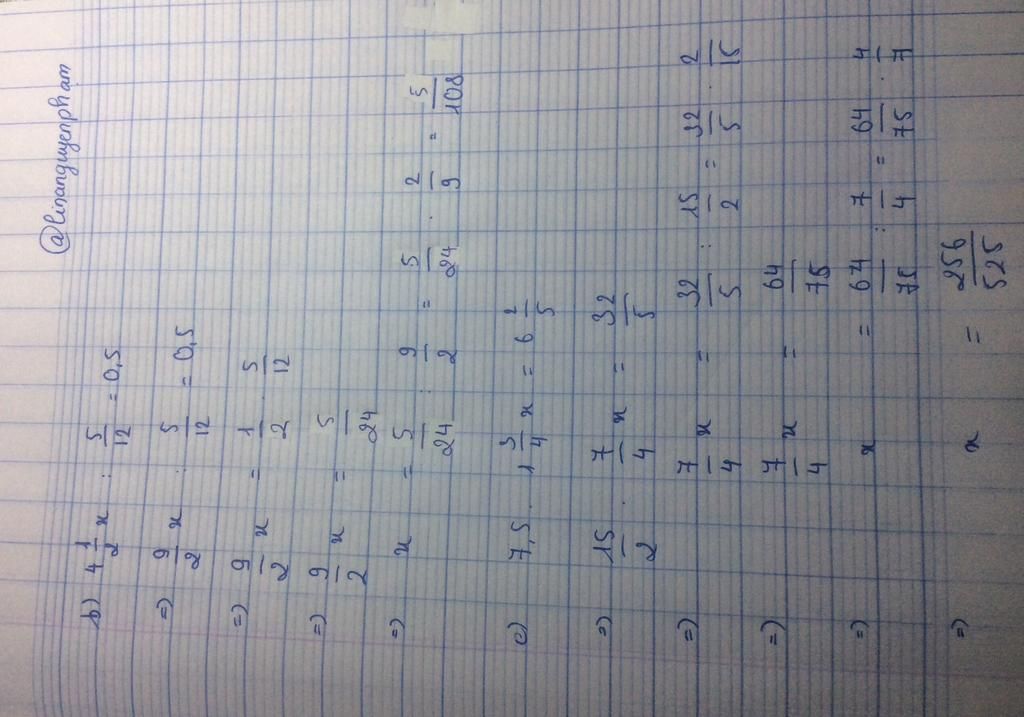 @linanguyenpham
b) 4 1/2 x : 5/12 = 0,5
=) 9/2 x : 5/12 = 0,5
=) 9/2 x = 1/2 . 5/12
=) 9/2 x = 5/24
=) x = 5/24 : 9/2 = 5/24 . 2/9 = 5/108
c) 7,5 . 1 3/4 x = 6 2/5
=) 15/2 . 7/4 x = 32/5
=) 7/4 x = 32/5 : 15/2 = 32/5 . 2/15
=) 7/4 x = 64/75
=) x = 64/75 : 7/4 = 64/75 . 4/7
=) x = 256/525